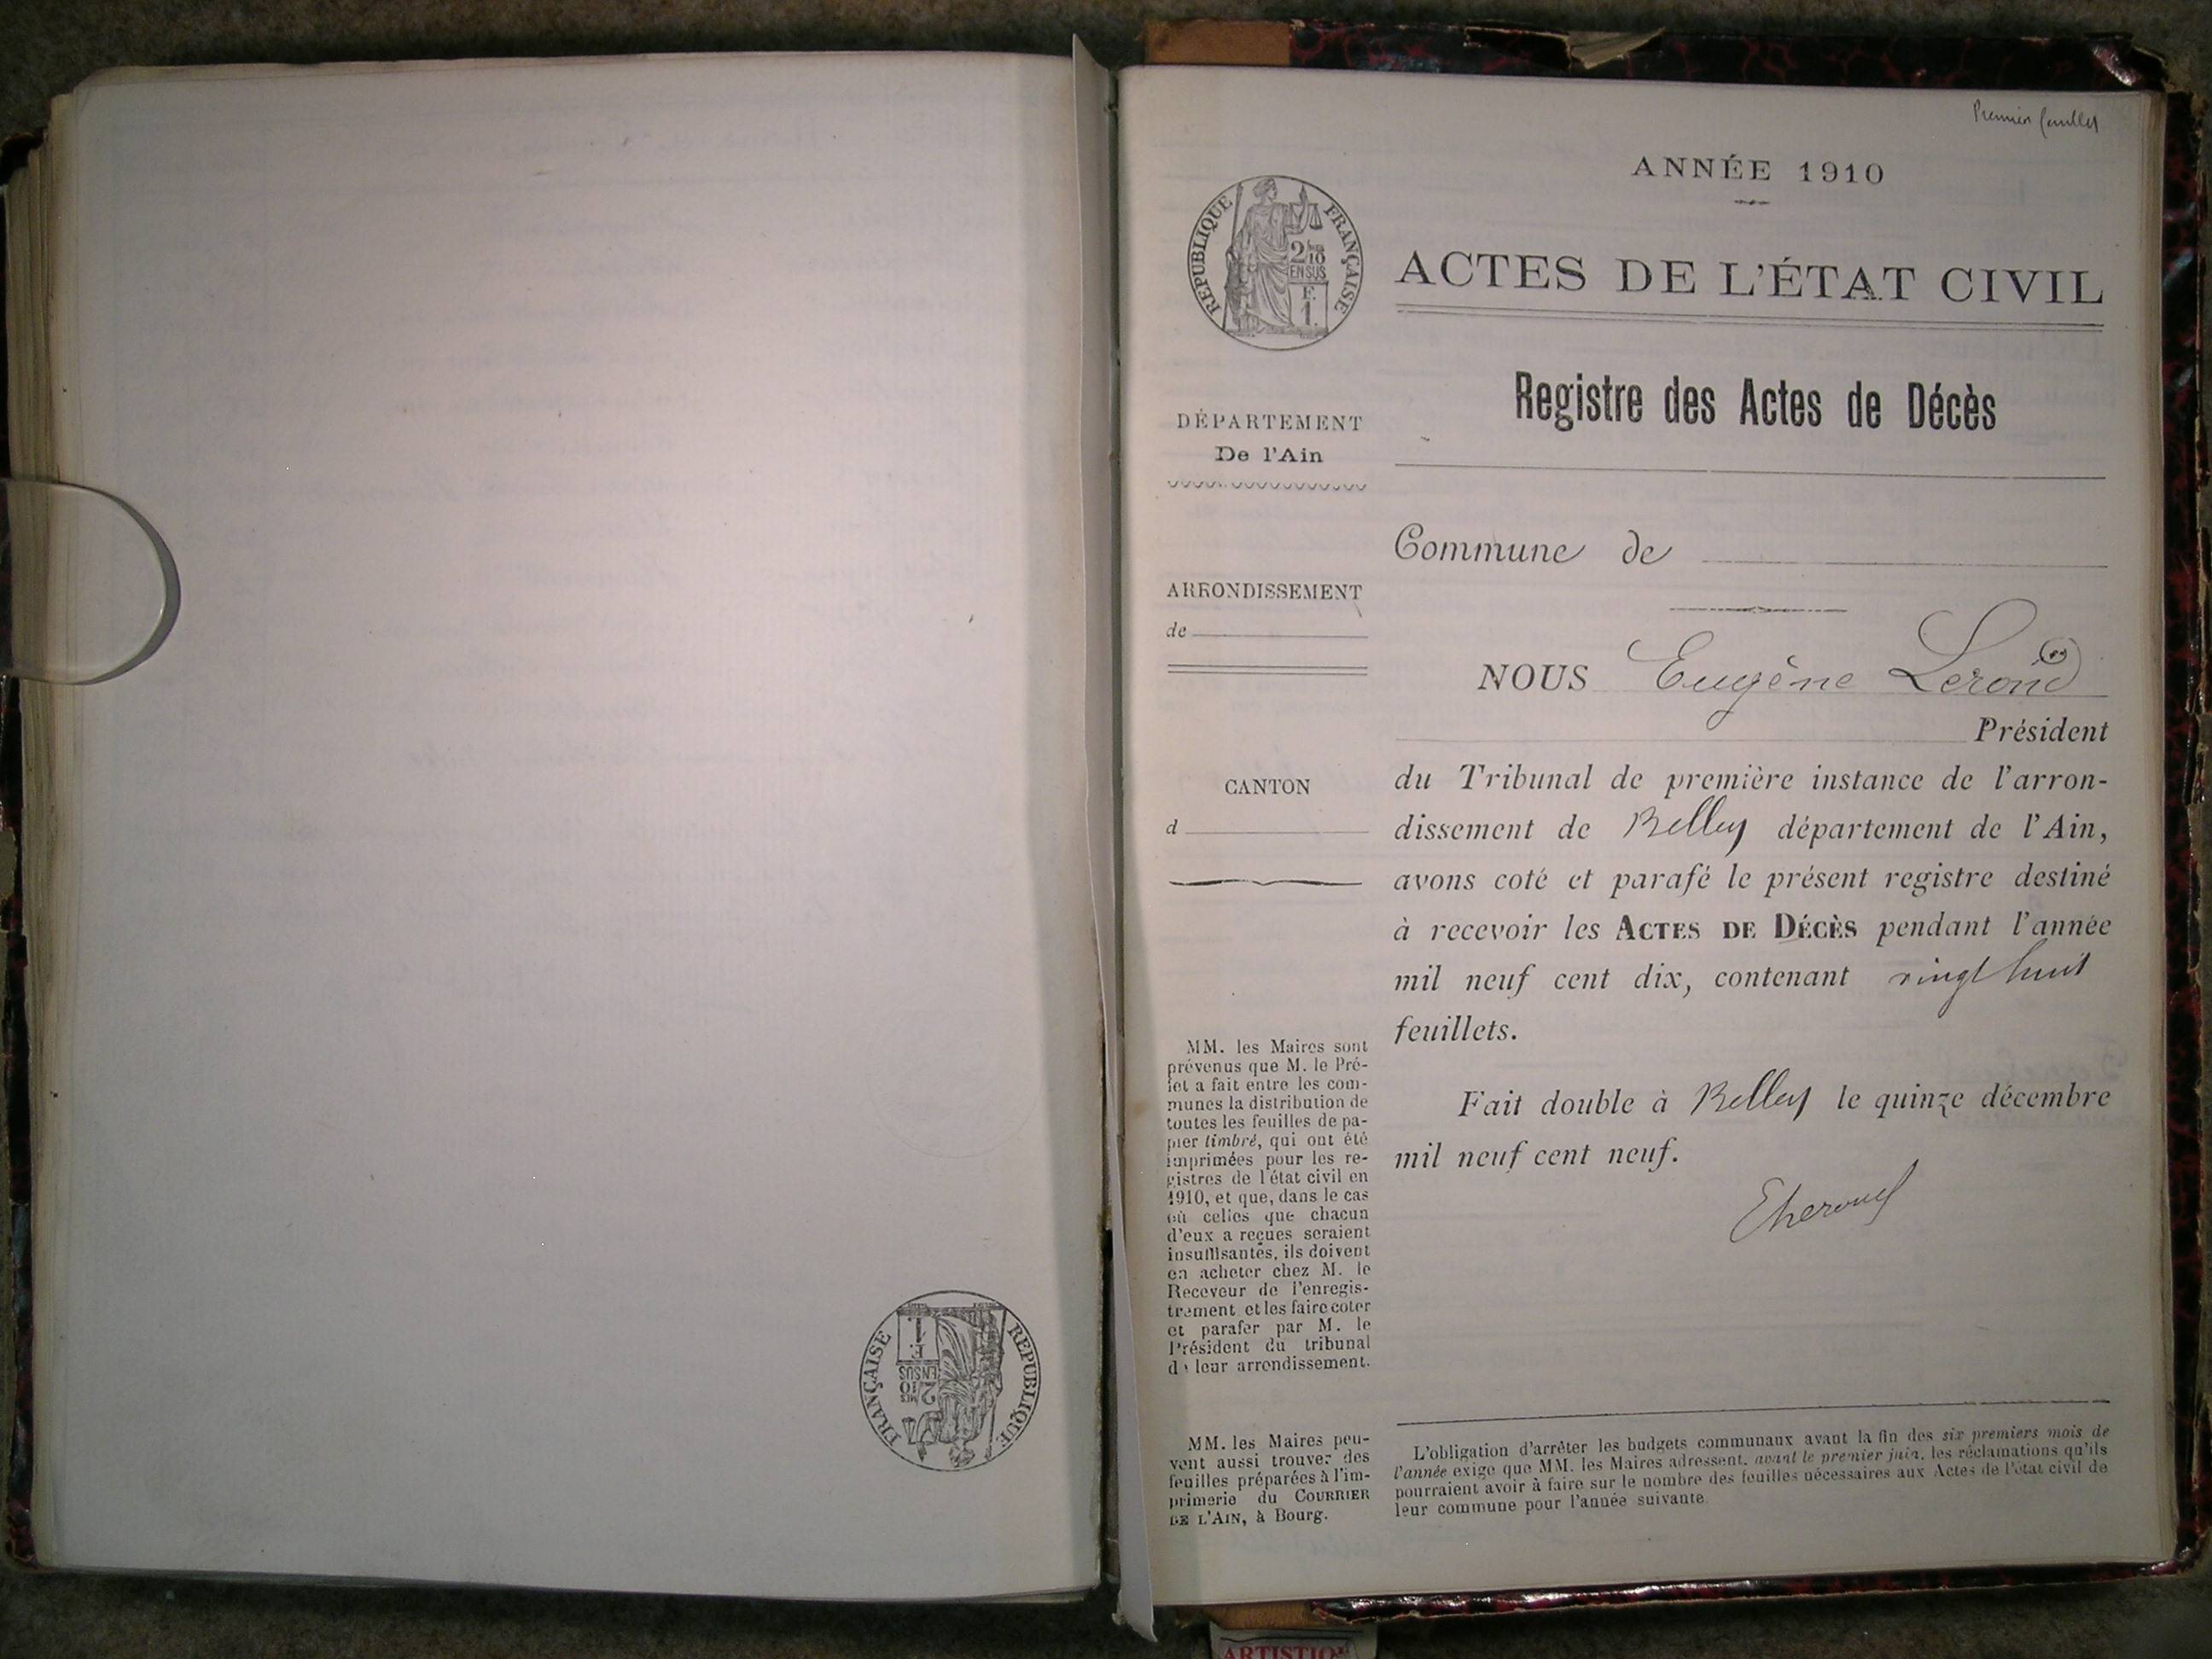 RÉPUBLIQUE FRANÇAISE
2/10
EN SUS
F.
1.
Premier feuillet
ANNÉE 1910
RÉPUBLIQUE FRANÇAISE
2/10
EN SUS
F.
1.
ACTES DE L'ÉTAT CIVIL
Registre des Actes de Décès
DÉPARTEMENT
De l'Ain
ARRONDISSEMENT
de
CANTON
d
MM. les Maires sont
prévenus que M. le Pré-
fet a fait entre les com-
munes la distribution de
toutes les feuilles de pa-
pier timbré, qui ont été
imprimées pour les re-
gistres de l'état civil en
1910, et que, dans le cas
où celles que chacun
d'eux a reçues seraient
insuffisantes, ils doivent
en acheter chez M. le
Receveur de l'enregis-
trement et les faire coter
et parafer par M. le
Président du tribunal
de leur arrondissement.
MM. les Maires peu-
vent aussi trouver des
feuilles préparées à l'im-
primerie du COURRIER
DE L'AIN, à Bourg.
Commune de
NOUS Eugène
Président
du Tribunal de première instance de l'arron-
dissement de Belley département de l'Ain,
avons coté et parafé le présent registre destiné
à recevoir les ACTES DE DÉCÈS pendant l'année
mil neuf cent dix, contenant vingt huit
feuillets.
Fait double à Belley le quinze décembre
mil neuf cent neuf.
L'obligation d'arrêter les budgets communaux avant la fin des six premiers mois de
l'année exige que MM. les Maires adressent, avant le premier juin, les réclamations qu'ils
pourraient avoir à faire sur le nombre des feuilles nécessaires aux Actes de l'état civil de
leur commune pour l'année suivante.